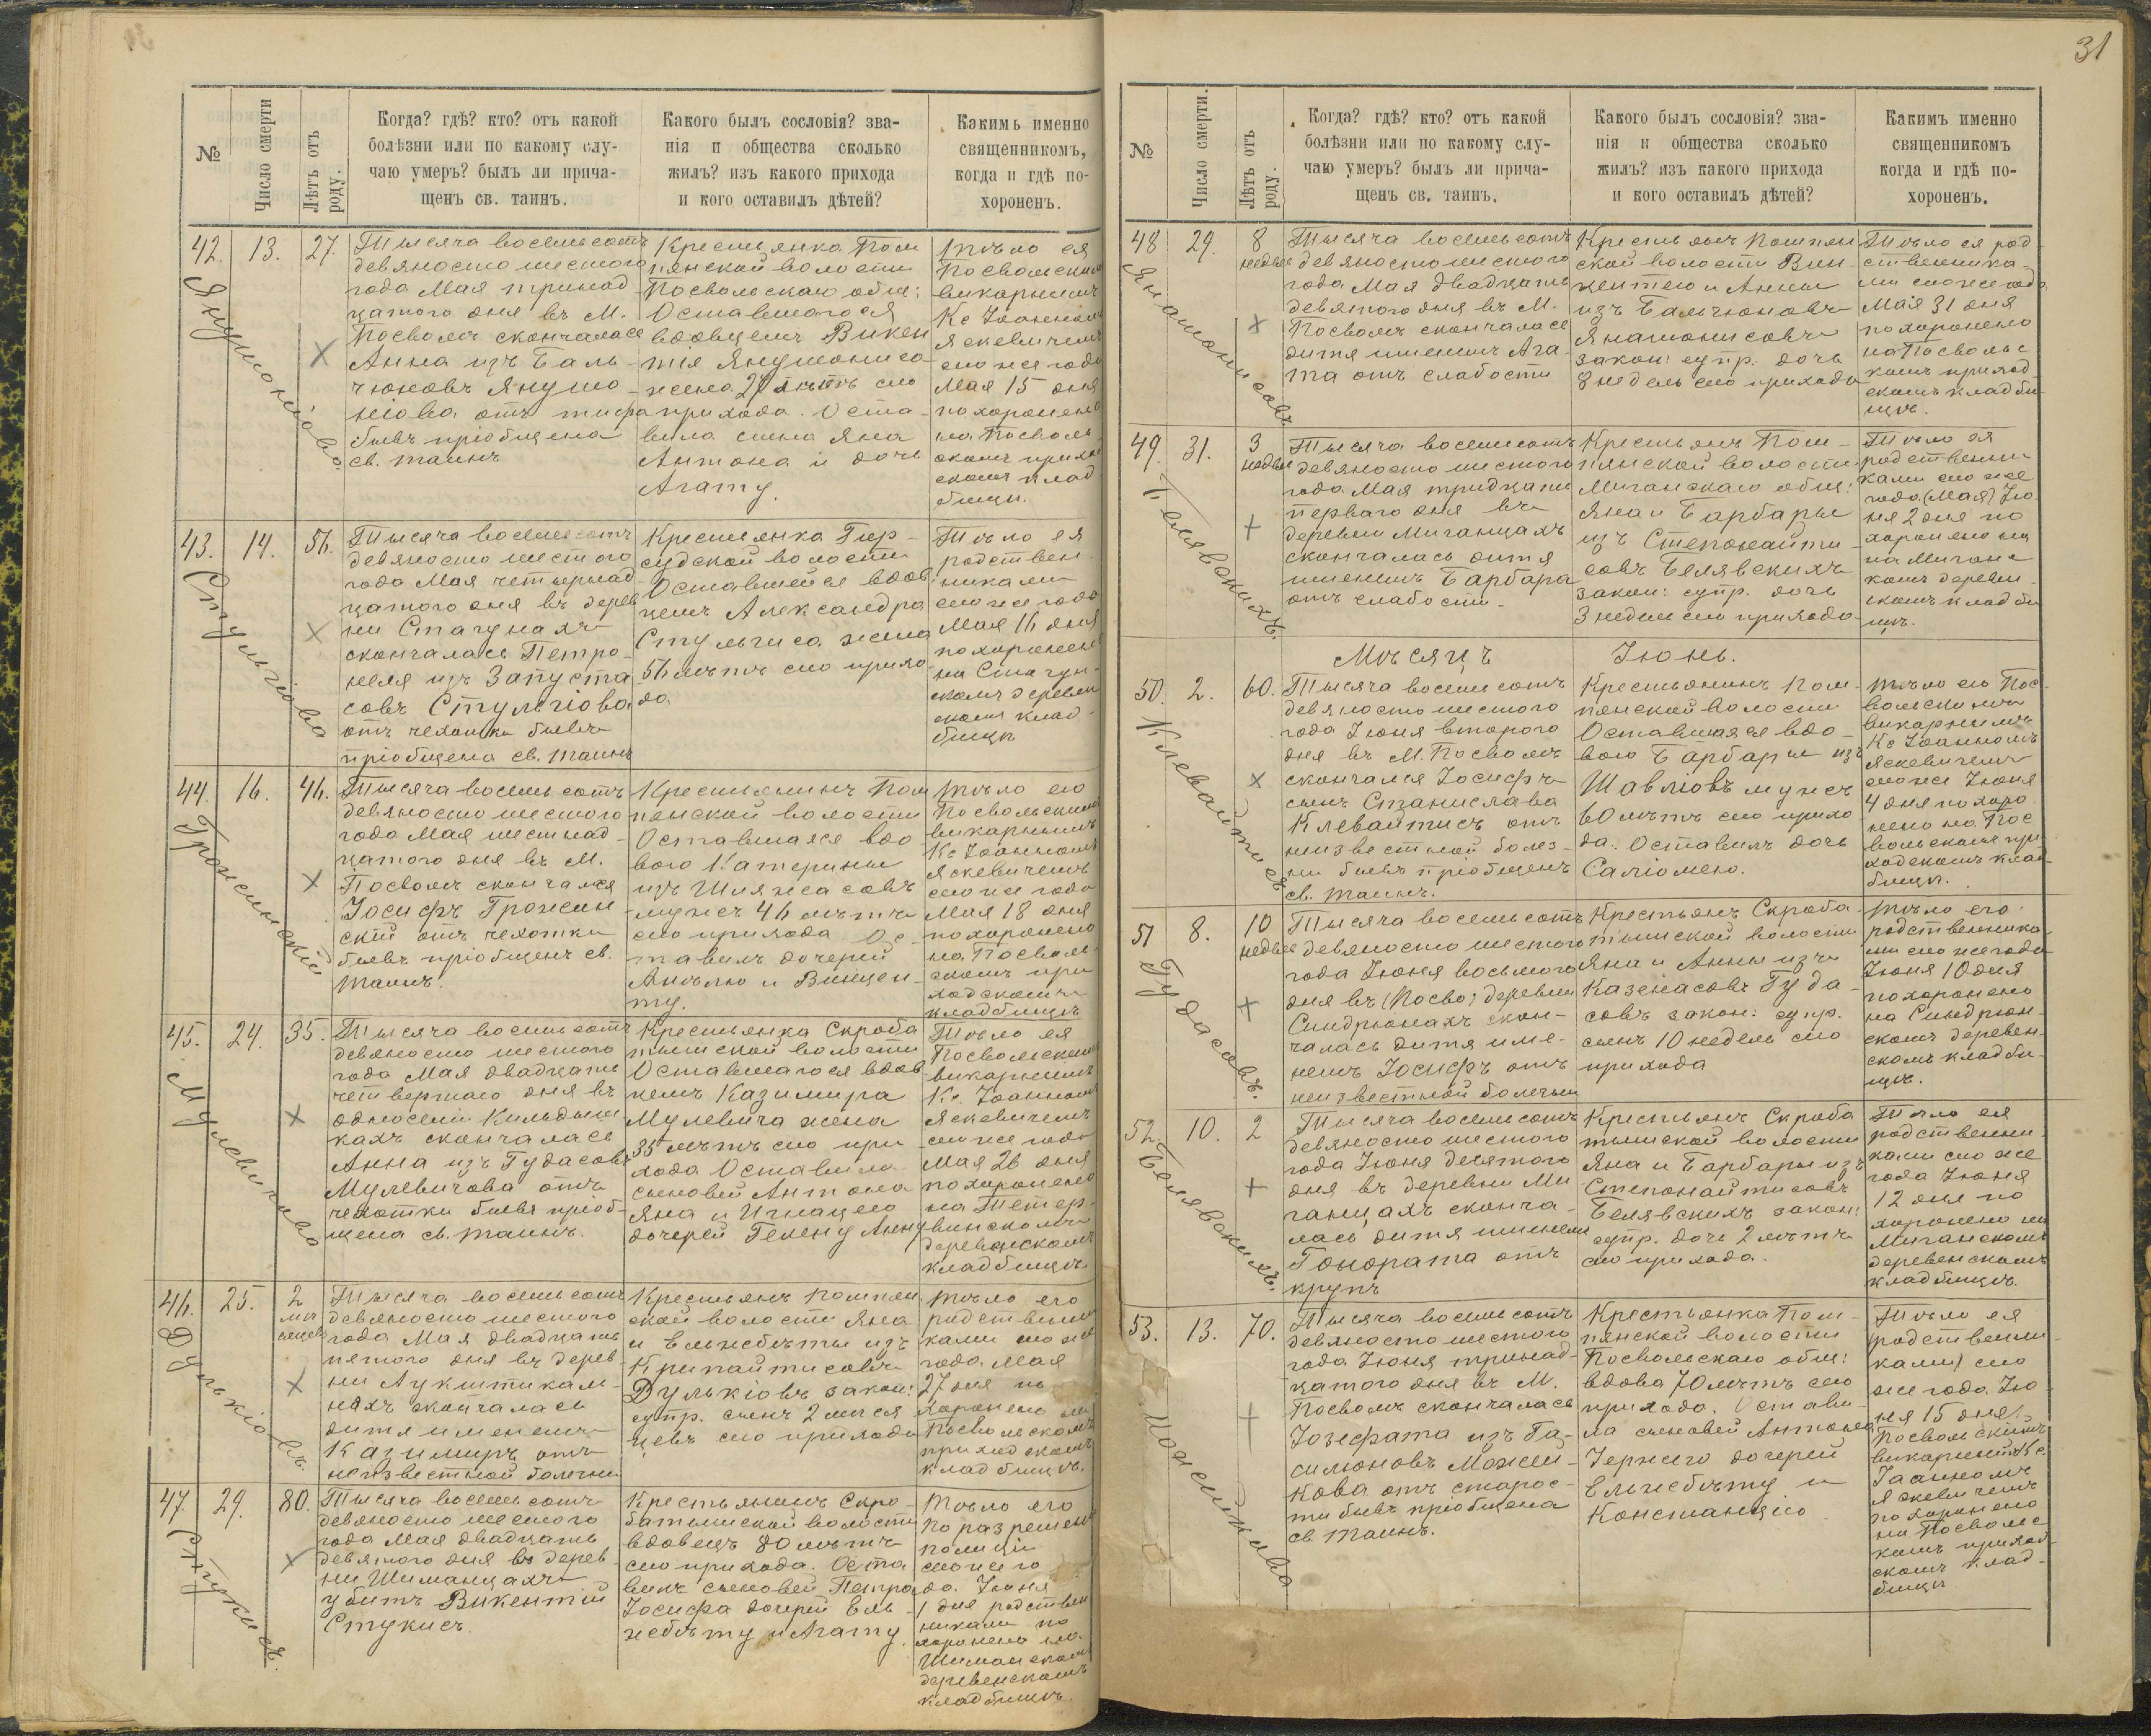 31
№
Число смерти
Лѣтъ отъ роду.
Когда? гдѣ? кто? отъ какой
болѣзни или по какому слу-
чаю умеръ? былъ ли прича-
щенъ св. таинъ.
Какого былъ сословія? зва-
нія и общества сколько
жилъ? изъ какого прихода
и кого оставилъ дѣтей?
Какимъ именно
священникомъ,
когда и гдѣ по-
хороненъ.
42. 13. 27.
Янушонiова
Тысяча восемьсотъ
девяносто шестого
года Мая тринад
цатого дня въ М.
Посволѣ скончалась
Анна изъ Баль-
чюновъ Янушо-
ніова отъ тифа
бывъ пріобщена
св. таинъ
Крестьянка Пом
пянской волости
Посвольскаго общ:
Оставшагося
вдовцемъ Викен
тія Янушониса
жена 27 лѣтъ сего
прихода. Оста-
вила сына Яна
Антона и дочь
Агату.
Тѣло ея
Посвольскимъ
викарнымъ
Кс Іоанномъ
Яскевичемъ
сего же года
Мая 15 дня
похоронено
на Посволь
скомъ приход
скомъ клад
бищѣ.
43. 14. 56.
Стульгiова
Тысяча восемьсотъ
девяносто шестого
года Мая четырнад
цатого дня въ дерев
ни Стачунахъ
скончалась Петро-
неля изъ Запуста
совъ Стульгіова
отъ чехотки бывъ
пріобщена св. таинъ
Крестьянка Гир-
судской волости
Оставшейся вдов
цемъ Александра
Стульгиса жена
56 лѣтъ сего прихо-
да.
Тѣло ея
родствен
никами
сего же года
Мая 16 дня
похоронено
на Стачун-
скомъ деревен
скомъ клад-
бищѣ
44. 16. 46.
Грожинскiй
Тысяча восемьсотъ
девяносто шестого
года Мая шестнад-
цатого дня въ М.
Посволѣ скончался
Іосифъ Грожин
скій отъ чехотки
бывъ пріобщенъ св.
таинъ.
Крестьянинъ Пом
пянской волости
Оставшаяся вдо
вою Катерины
изъ Шляжасовъ
мужъ 46 лѣтъ
сего прихода Ос-
тавилъ дочерей
Анѣлю и Винцен-
ту.
Тѣло его
Посвольскимъ
викарнымъ
Кс Іоанномъ
Яскевичемъ
сего же года
Мая 18 дня
похоронено
на Посволь-
скомъ при
ходскомъ
кладбищѣ
45. 24. 35.
Мулевичова
Тысяча восемьсотъ
девяносто шестого
года Мая двадцать
четвертаго дня въ
односеліи Кильдыш
кахъ скончалась
Анна изъ Гудасовъ
Мулевичова отъ
чехотки бывъ пріоб-
щена св. таинъ.
Крестьянка Скроба
тышской волости
Оставшагося вдов
цемъ Казимира
Мулевича жена
35 лѣтъ сего при
хода Оставила
сыновей Антона
Яна и Игнацего
дочерей Гелену Анну
Тѣло ея
Посвольскимъ
викарнымъ
Кс. Іоанномъ
Яскевичемъ
сего же года
Мая 26 дня
похоронено
на Тетер-
винскомъ
деревенскомъ
кладбищѣ
46. 25. 2 мѣсяцевъ
Дулькiовъ.
Тысяча восемьсотъ
девяносто шестого
года Мая двадцать
пятого дня въ дерев-
ни Аукштикаль-
нахъ скончалась
дитя именемъ
Казимиръ отъ
неизвестной болѣзни
Крестьянъ Помпян
ской волости Яна
и Ельжбѣты изъ
Крипайтисовъ
Дулькіовъ закон:
супр. сынъ 2 мѣся
цевъ сего прихода
Тѣло его
родственни
ками сего же
года Мая
27 дня по
хоронено на
Посвольскомъ
приходскомъ
кладбищѣ.
47. 29. 80.
Стукисъ.
Тысяча восемьсотъ
девяносто шестого
года Мая двадцать
девятого дня въ дерев-
ни Шиманцахъ
убитъ Викентій
Стукисъ.
Крестьянинъ Скро-
батышской волости
вдовецъ 80 лѣтъ
сего прихода. Оста
вилъ сыновей Петра
Іосифа дочерей Ель-
жебѣту и Агату.
Тѣло его
по разрешенію
полиціи
сего же го
да. Іюня
1 дня родствен
никами по
хоронено на
Шиманскомъ
деревенскомъ
кладбищѣ.
№
Число смерти.
Лѣтъ отъ роду.
Когда? гдѣ? кто? отъ какой
болѣзни или по какому слу-
чаю умеръ? былъ ли прича-
щенъ св. таинъ.
Какого былъ сословія? зва-
нія и общества сколько
жилъ? изъ какого прихода
и кого оставилъ дѣтей?
Какимъ именно
священникомъ
когда и гдѣ по-
хороненъ.
48 29. 8 недѣль
Янатонисовъ
Тысяча восемьсотъ
девяностошестого
года Мая двадцать
девятого дня въ М.
Посволѣ скончалась
дитя именемъ Ага-
та отъ слабости
Крестьянъ Помпян
ской волости Вин-
центего и Анны
изъ Бальчюновъ
Янатонисовъ
закон: супр. дочь
8 недель сего прихода
Тѣло ея род
ственника-
ми сего же года
Мая 31 дня
похоронено
на Посволь
комъ приход
скомъ кладби
щѣ.
49. 31. 3 недѣль
Белявскихъ.
Тысяча восемьсотъ
девяносто шестого
года Мая тридцать
перваго дня въ
деревни Миганцахъ
скончалась дитя
именемъ Барбара
отъ слабости.
Крестьянъ Пом-
пянской волости
Миганскаго общ:
Яна и Барбары
изъ Степонайти
совъ Белявскихъ
закон: супр. дочь
3 недель сего прихода
Тѣло ея
родственни
ками сего же
года (Мая) Ію
ня 2 дня по
хоронено на
на Миганс
комъ деревен
скомъ кладби
щѣ.
Мѣсяцъ Іюнь.
50. 2. 60.
Клевайтисъ
Тысяча восемьсотъ
девяносто шестого
года Іюня второго
дня въ М. Посволѣ
скончался Іосифъ
сынъ Станислава
Клевайтисъ отъ
неизвестной болез-
ни бывъ пріобщенъ
св. таинъ.
Крестьянинъ Пом-
пянской волости
Оставшаяся вдо-
вою Барбары изъ
Шавліовъ мужъ
60 лѣтъ сего прихо
да. Оставилъ дочь
Саліомею.
Тѣло его Пос-
вольскимъ
викарнымъ
Кс Іоанномъ
Яскевичемъ
сего же Іюня
4 дня похоро
нено на Пос
вольскомъ при
ходскомъ клад-
бищѣ.
51 8. 10 недѣль
Гудасовъ.
Тысяча восемьсотъ
девяносто шестого
года Іюня восьмого
дня въ (Посво) деревни
Синдріонахъ скон-
чалась дитя име-
немъ Іосифъ отъ
неизвестной болѣзни
Крестьянъ Скроба-
тышской волости
Яна и Анны изъ
Казенасовъ Гуда-
совъ закон: супр.
сынъ 10 недель сего
прихода
Тѣло его
родственника
ми сего же года
Іюня 10 дня
похоронено
на Синдріон-
скомъ деревен-
скомъ кладби-
щѣ.
52. 10. 2
Белявскихъ.
Тысяча восемьсотъ
девяносто шестого
года Іюня десятого
дня въ деревни Ми
ганцахъ сконча-
лась дитя именемъ
Гонората отъ
крупъ
Крестьянъ Скроба
тышской волости
Яна и Барбары изъ
Степонайтисовъ
Белявскихъ закон:
супр. дочь 2 лѣтъ
сего прихода.
Тѣло ея
родственни-
ками сего же
года Іюня
12 дня по
хоронено на
Миганскомъ
деревенскомъ
кладбищѣ.
53. 13. 70.
Можейкова
Тысяча восемьсотъ
девяносто шестого
года Іюня тринад-
цатого дня въ М.
Посволѣ скончалась
Іозефата изъ Га-
силюновъ Можей-
кова отъ старос-
ти бывъ пріобщена
св таинъ.
Крестьянка Пом-
пянской волости
Посвольскаго общ:
вдова 70 лѣтъ сего
прихода. Остави-
ла сыновей Антонего
Іержего дочерей
Ельжебѣту и
Констанцію
Тѣло ея
(родственни-
ками) сего
же года Ію-
ня 15 дня
Посвольскимъ
викарнымъ Кс.
Іоанномъ
Яскевичемъ
похоронено
на Посвольс
комъ приход-
скомъ клад-
бищѣ